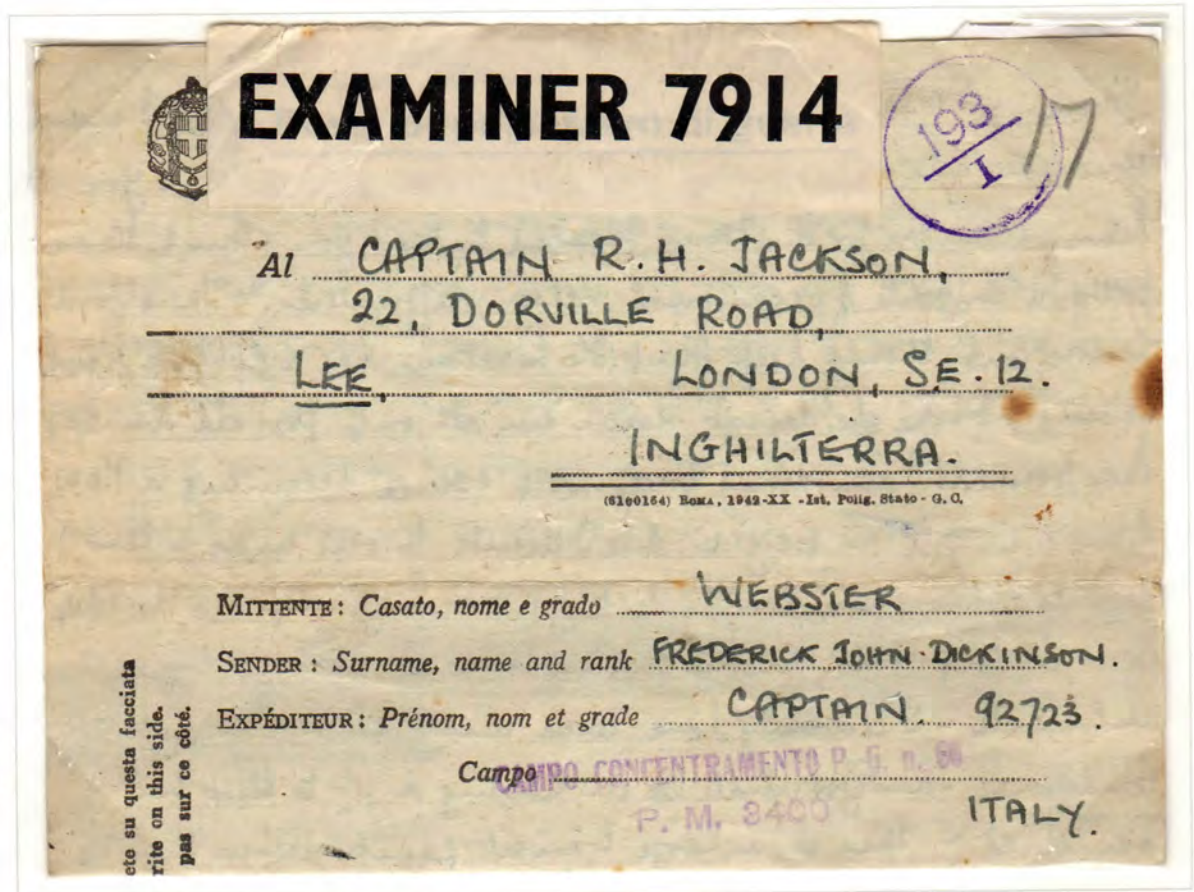 EXAMINER 7914
193
I
17
Al CAPTAIN R. H. JACKSON,
22, DORVILLE ROAD,
LEE, LONDON, SE. 12.
INGHILTERRA.
(6160164) ROMA, 1942-XX - Ist. Polig. Stato - G. C.
MITTENTE: Casato, nome e grado WEBSTER
SENDER: Surname, name and rank FREDERICK JOHN DICKINSON.
EXPÉDITEUR: Prénom, nom et grade CAPTAIN. 92723.
Campo CAMPO CONCENTRAMENTO P. G. n.
P. M. 3400
ITALY.
ete su questa facciata
rite on this side.
pas sur ce côté.